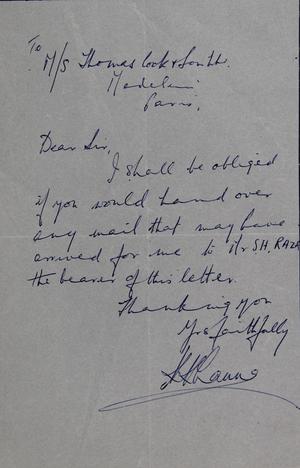 To
M/S Thomas Cook & Son Ltd.
Madeleine
Paris,
Dear Sir,
I shall be obliged
if you would hand over
any mail that may have
arrived for me to Mr SH. RAZA
the bearer of this letter.
Thanking you
Yrs faithfully